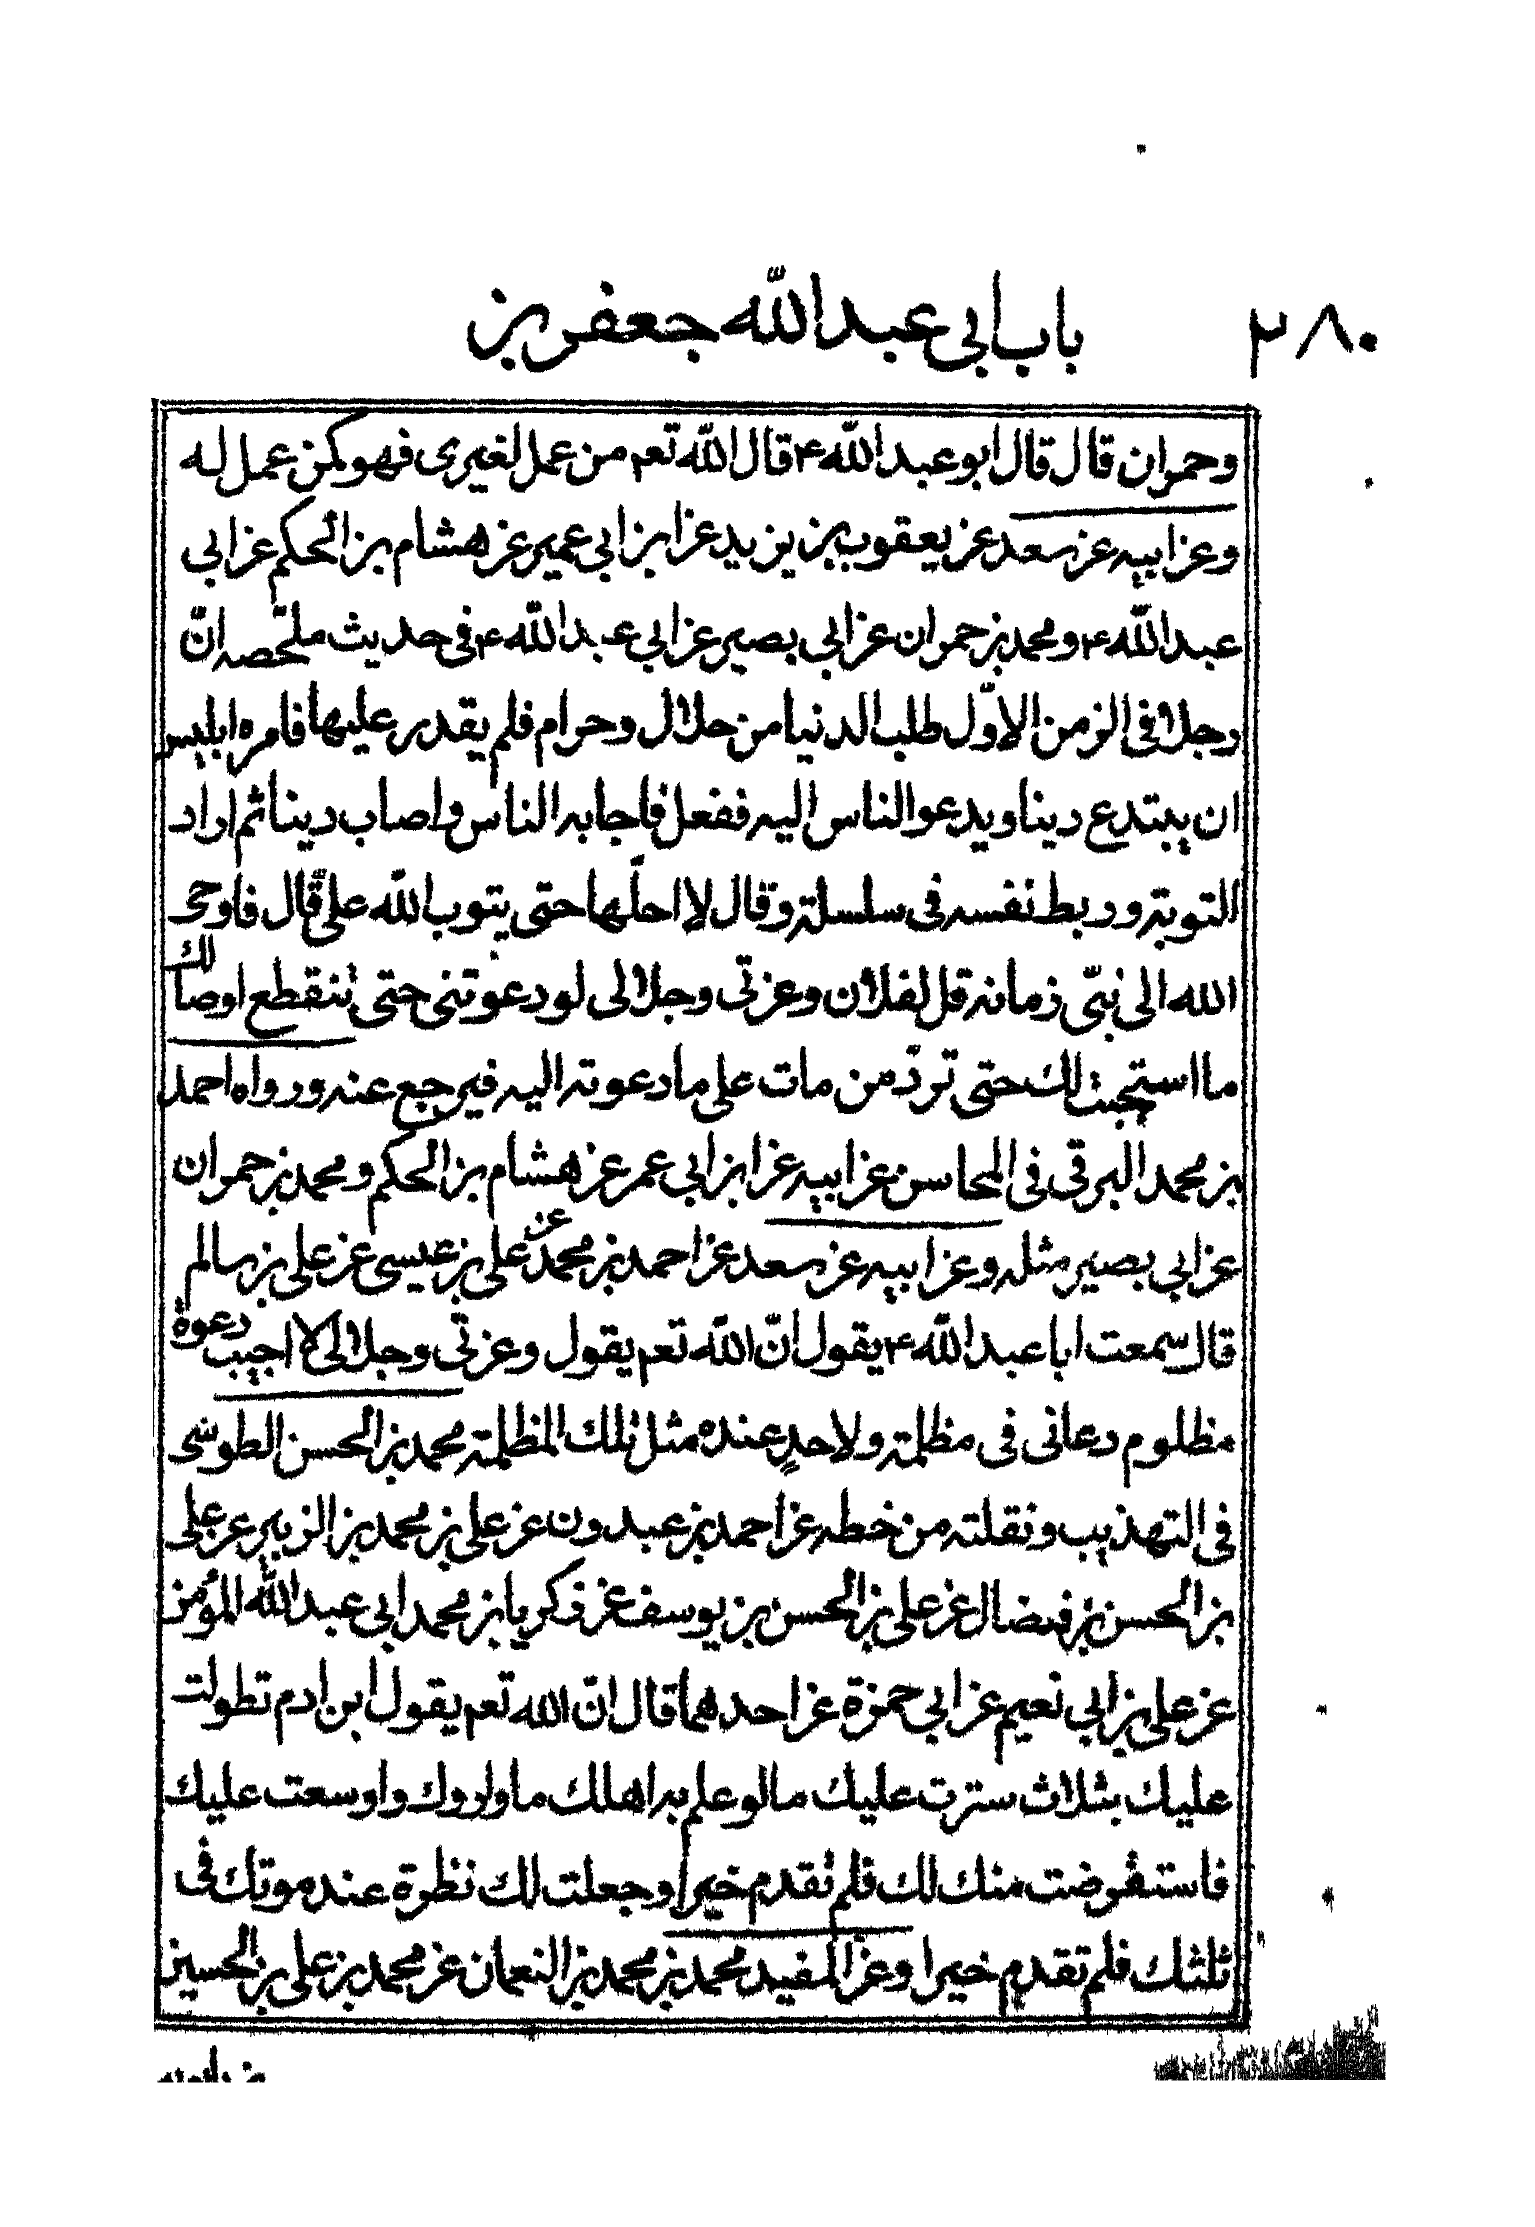 ٢٨٠ باب ابي عبد الله جعفر بن
وحمران قال قال ابو عبد الله ع قال الله تعم من عمل لغيرى فهو كمن عمل له
وعن ابيه عن سعد عن يعقوب بن يزيد عن ابن ابي عمير عن هشام بن الحكم عن ابي
عبد الله ع ومحمد بن حمران عن ابي بصير عن ابي عبد الله ع في حديث ملخصه انّ
رجلا في الزمن الاوّل طلب الدنيا من حلال وحرام فلم يقدر عليها فامره ابليس
ان يبتدع دينا ويدعو الناس اليه ففعل فاجابه الناس واصاب دينا ثم اراد
التوبة وربط نفسه في سلسلة وقال لا احلّها حتى يتوب الله على قال فاوحى
الله الى نبيّ زمانه قل لفلان وعزتي وجلالى لو دعوتنى حتى تنقطع اوصالك
ما استجبت لك حتى تردّ من مات على ما دعوته اليه فيرجع عنه ورواه احمد
بن محمد البرقي في المحاسن عن ابيه عن ابن ابي عمر عن هشام بن الحكم ومحمد بن حمران
عن ابي بصير مثله وعن ابيه عن سعد عن احمد بن محمد عن على بن عيسى عن على بن سالم
قال سمعت ابا عبد الله ع يقول انّ الله تعم يقول وعزتي وجلالى لا اجيب دعوة
مظلوم دعانى في مظلمة ولاحدٍ عنده مثل تلك المظلمة محمد بن الحسن الطوسى
في التهذيب ونقلته من خطه عن احمد بن عبدون عن على بن محمد بن الزبير عن على
بن الحسن بن فضال عن على بن الحسن بن يوسف عن زكريا بن محمد ابي عبد الله المؤمن
عن على بن ابي نعيم عن ابي حمزة عن احدهما قال انّ الله تعم يقول ابن ادم تطولت
عليك بثلاث سترت عليك ما لو علم به اهلك ما واروك واوسعت عليك
فاستقرضت منك لك فلم تقدم خيرا وجعلت لك نظرة عند موتك في
ثلثك فلم تقدم خيرا وعن المفيد محمد بن محمد بن النعمان عن محمد بن على بن الحسين